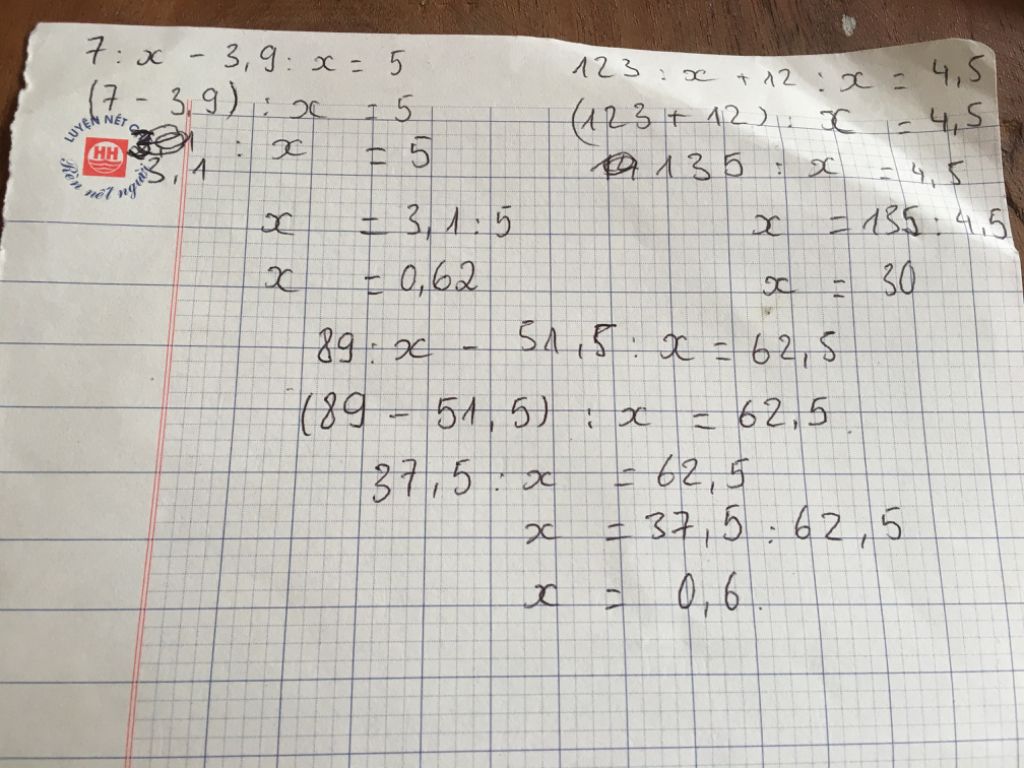 7 : x - 3,9 : x = 5
(7 - 3,9) : x = 5
3,1 : x = 5
x = 3,1 : 5
x = 0,62
123 : x + 12 : x = 4,5
(123 + 12) : x = 4,5
135 : x = 4,5
x = 135 : 4,5
x = 30
89 : x - 51,5 : x = 62,5
(89 - 51,5) : x = 62,5
37,5 : x = 62,5
x = 37,5 : 62,5
x = 0,6.
LUYỆN NÉT
HH
Rèn nết người